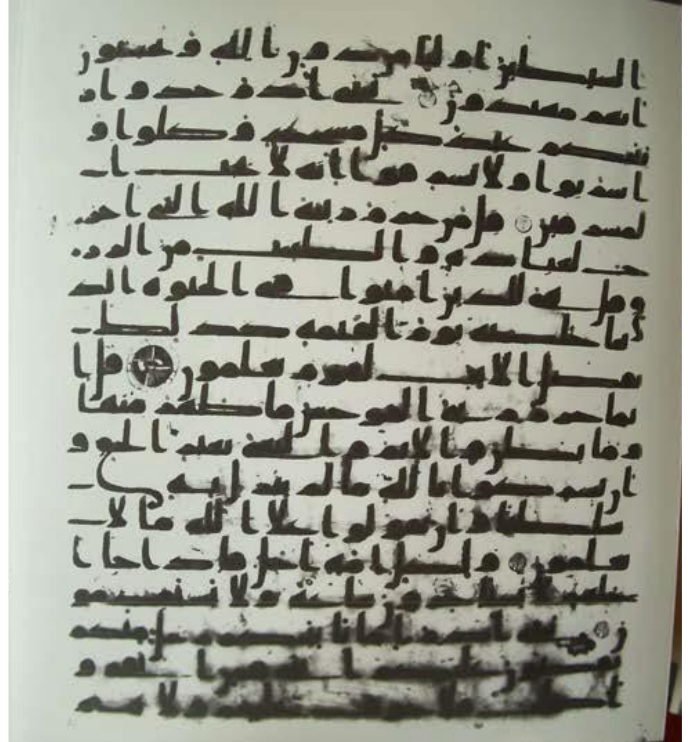 الشيطين اوليا من دون الله و يحسبون
انهم مهتدون يبني ادم خذوا ز
ينتكم عند كل مسجد و كلوا و
اشربوا و لا تسرفوا انه لا يحب ا
لمسرفين قل من حرم زينه الله التي اخر
ج لعباده و الطيبت من الرز
ق قل هي للذين امنوا في الحيوه الد
نيا خالصه يوم القيمه كذلك
نفصل الايت لقوم يعلمون قل ا
نما حرم ربي الفوحش ما ظهر منها
و ما بطن و الاثم و البغي بغير الحق و
ان تشركوا بالله ما لم ينزل به
سلطنا و ان تقولوا على الله ما لا
تعلمون و لكل امه اجل فاذا جا ا
جلهم لا يستاخرون ساعه و لا يستقدمو
ن يبني ادم اما ياتينكم رسل منكم
يقصون عليكم ايتي فمن اتقى و
اصلح فلا خوف عليهم و لا هم